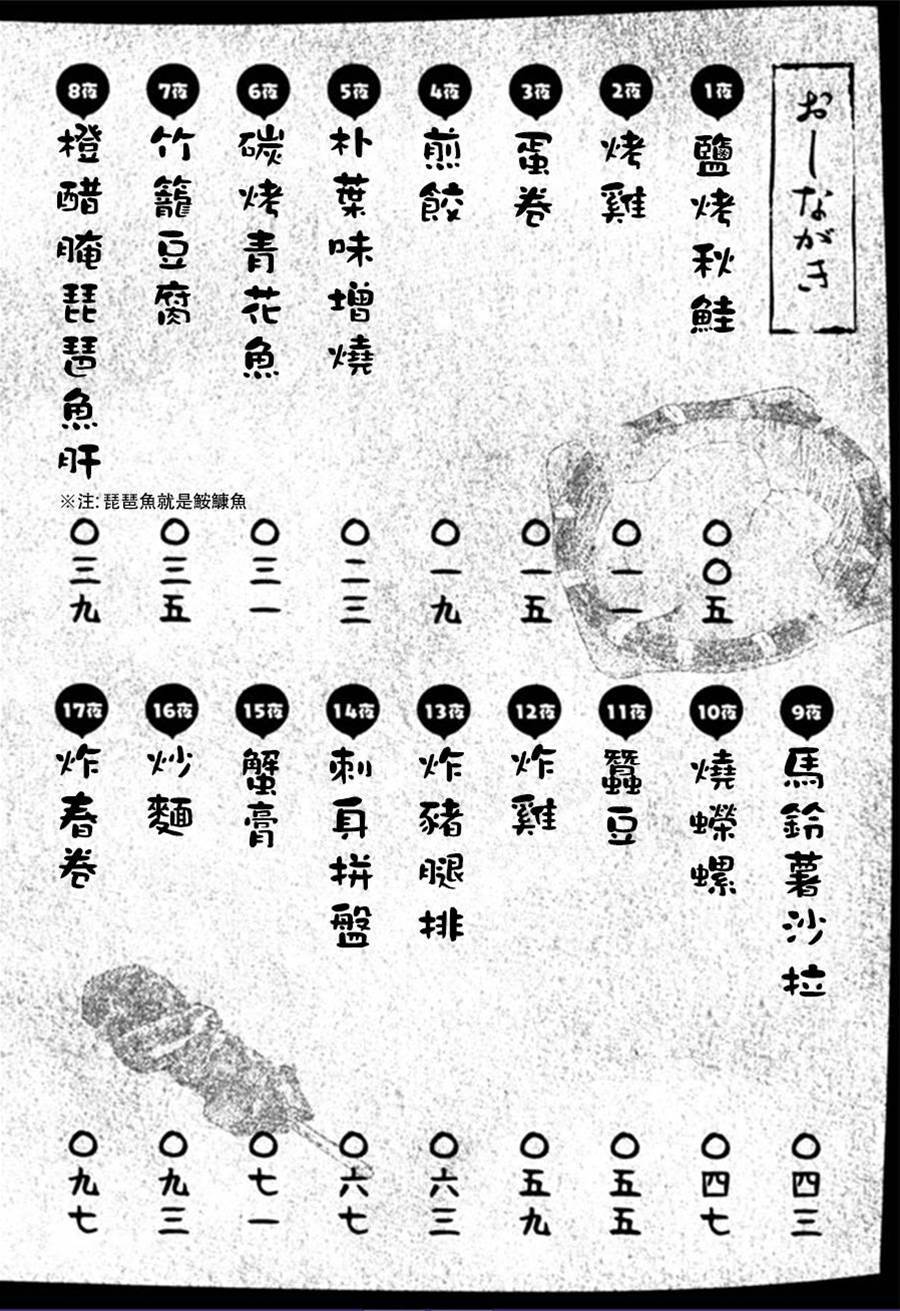 おーしながき
1夜
鹽烤秋鮭
〇〇五
2夜
烤雞
〇一一
3夜
蛋卷
〇一五
4夜
煎餃
〇一九
5夜
朴葉味增燒
〇二三
6夜
碳烤青花魚
〇三一
7夜
竹籠豆腐
〇三五
8夜
橙醋腌琵琶魚肝
※注:琵琶魚就是鮟鱇魚
〇三九
9夜
馬鈴薯沙拉
〇四三
10夜
燒蠑螺
〇四七
11夜
蠶豆
〇五五
12夜
炸雞
〇五九
13夜
炸豬腿排
〇六三
14夜
刺身拼盤
〇六七
15夜
蟹膏
〇七一
16夜
炒麵
〇九三
17夜
炸春卷
〇九七